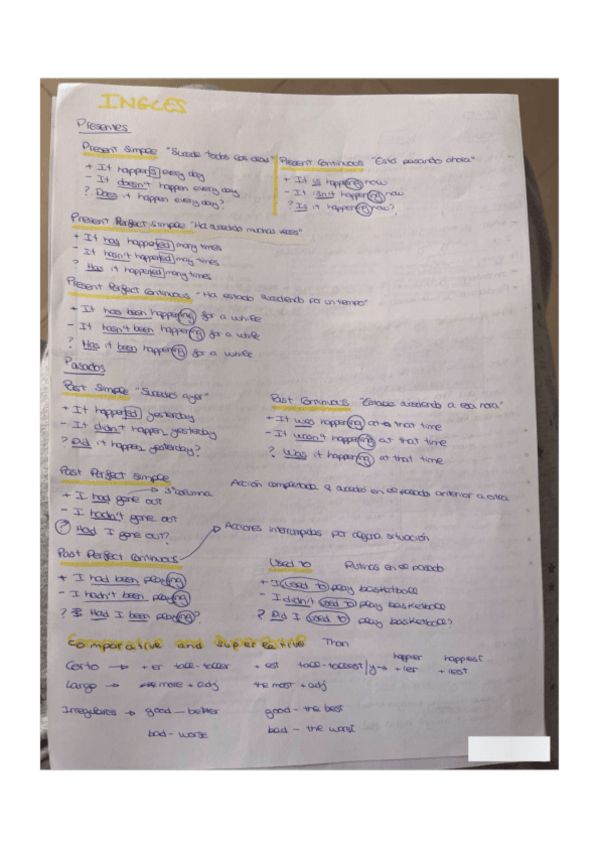 INGLES
Presentes
Present Simple "Sucede todos los días"
+ It happens every day
- It doesn't happen every day
? Does it happen every day?
Present Continuous "Está pasando ahora"
+ It is happening now
- It isn't happening now
? Is it happening now?
Present Perfect Simple "Ha sucedido muchas veces"
+ It has happened many times
- It hasn't happened many times
? Has it happened many times
Present Perfect Continuous "Ha estado sucediendo por un tiempo"
+ It has been happening for a while
- It hasn't been happening for a while
? Has it been happening for a while
Pasados
Past Simple "Sucedió ayer"
+ It happened yesterday
- It didn't happen yesterday
? Did it happen yesterday?
Past Continuous "Estaba sucediendo a esa hora"
+ It was happening at that time
- It wasn't happening at that time
? Was it happening at that time
Past Perfect Simple
+ I had gone out → 3ª columna
- I hadn't gone out
? Had I gone out?
Acción completada q sucedió en el pasado anterior a otra
Past Perfect Continuous → Acciones interrumpidas por alguna situación
+ I had been playing
- I hadn't been playing
? Had I been playing?
Used to Rutinas en el pasado
+ I used to play basketball
- I didn't used to play basketball
? Did I used to play basketball?
Comparative and Superlative Than
Corto → + er tall-taller + est tall-tallest / y → happier + ier happiest + iest
Largo → more + adj the most + adj
Irregulares → good - better good - the best
bad - worse bad - the worst